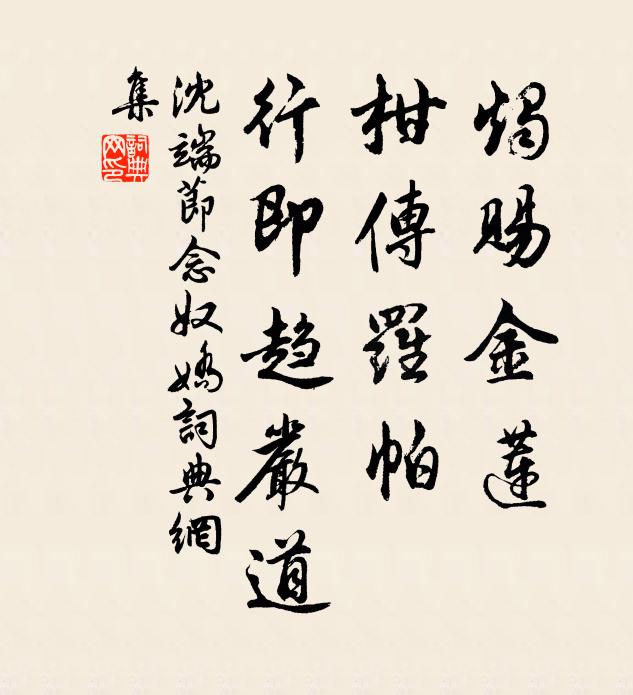 燭賜金蓮
柑傳羅帕
行即趨嚴道
沈端節念奴嬌詞典網
集
詞典
网印